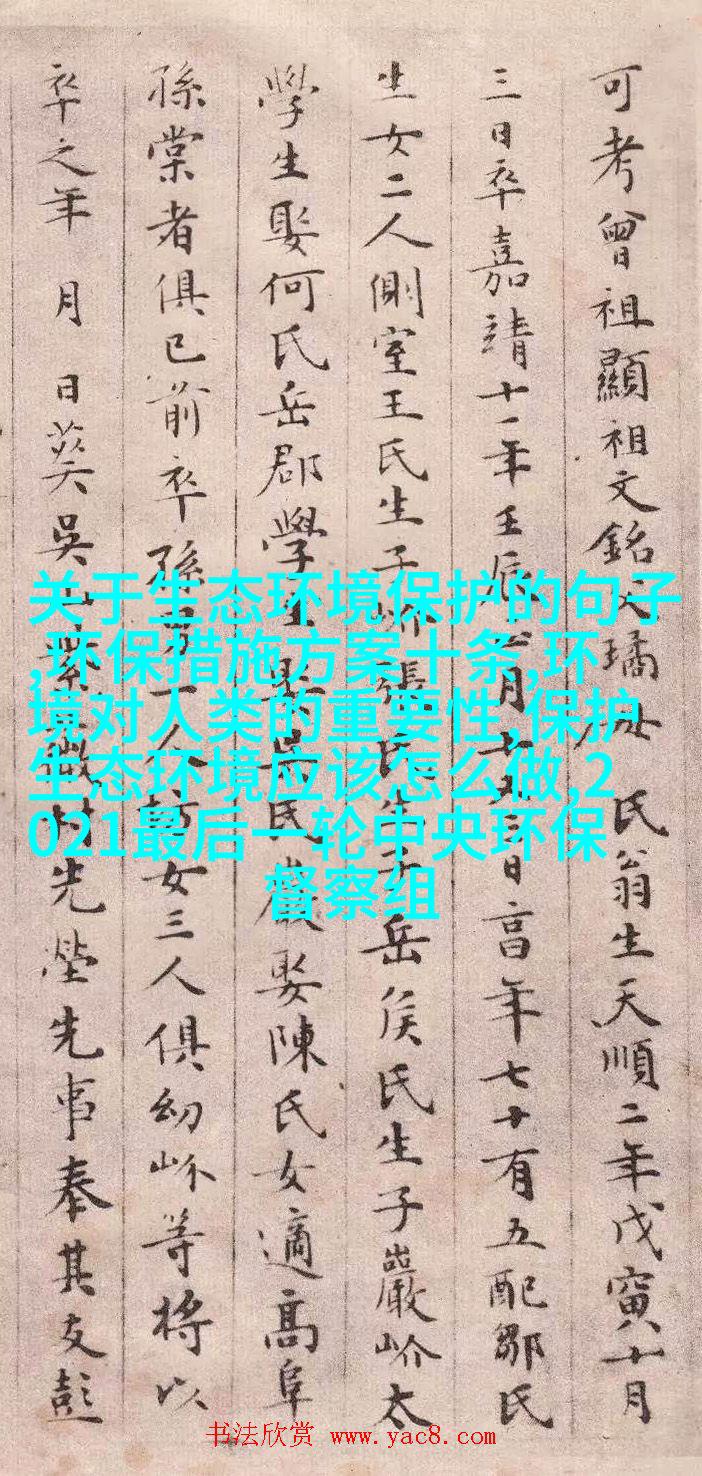 可考曾祖顯祖文銘父璚母 氏翁生天順二年戊寅十月
三日卒嘉靖十一年壬辰 月十 三日享年七十有五配鄒氏
生女二人側室王氏生子 張氏生子岳侯氏生子巖岕太
學生娶何氏岳郡學生娶 氏 娶陳氏女適高阜
孫棠者俱已前卒孫男一人 女三人俱幼岕等將以
卒之年 月 日葬吳 紫 村先塋先事奉其友彭
关于生态环境保护的句子
,环保措施方案十条,环
境对人类的重要性,保护
生态环境应该怎么做,2
021最后一轮中央环保
督察组
书法欣赏 www.yac8.com